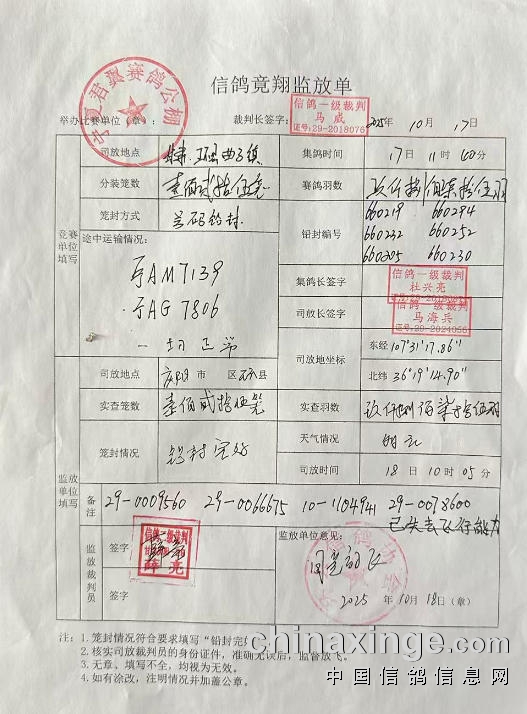 信鸽竞翔监放单
宁夏君翼赛鸽公棚
举办比赛单位（章）：
裁判长签字：
信鸽一级裁判
马威
证号:29-2018076
2025年 10月 17日
竞赛单位填写
司放地点
集鸽时间 17日 11时 40分
分装笼数 壹佰贰拾伍笼
赛鸽羽数
笼封方式 号码铅封
铅封编号
660219 660294
660232 660252
660305 660230
途中运输情况：
宁AM7139
宁AG7806
一切正常
集鸽长签字
信鸽一级裁判
杜兴亮
司放长签字
信鸽一级裁判
马海兵
证号:29-2024056
司放地坐标
东经 107°31'17.86"
北纬 36°19'14.90"
监放单位填写
司放地点 庆阳市 区环县
实查笼数 壹佰贰拾伍笼
实查羽数
笼封情况 铅封完好
天气情况 晴天
司放时间 18日 10时05分
备注 29-0009560 29-0066675 10-1104941 29-0078600
已失去飞行能力
监放裁判员
签字
信鸽一级裁判
薛亮
签字
监放单位意见：
同意放飞
2025年10月18日（章）
注：1. 笼封情况符合要求填写“铅封完好
2. 核实司放裁判员的身份证件，准确无误后，监督放飞。
3. 无章、填写不全，均视为无效。
4. 如有涂改，注明情况并加盖公章。
chinaxinge.com
中国信鸽信息网